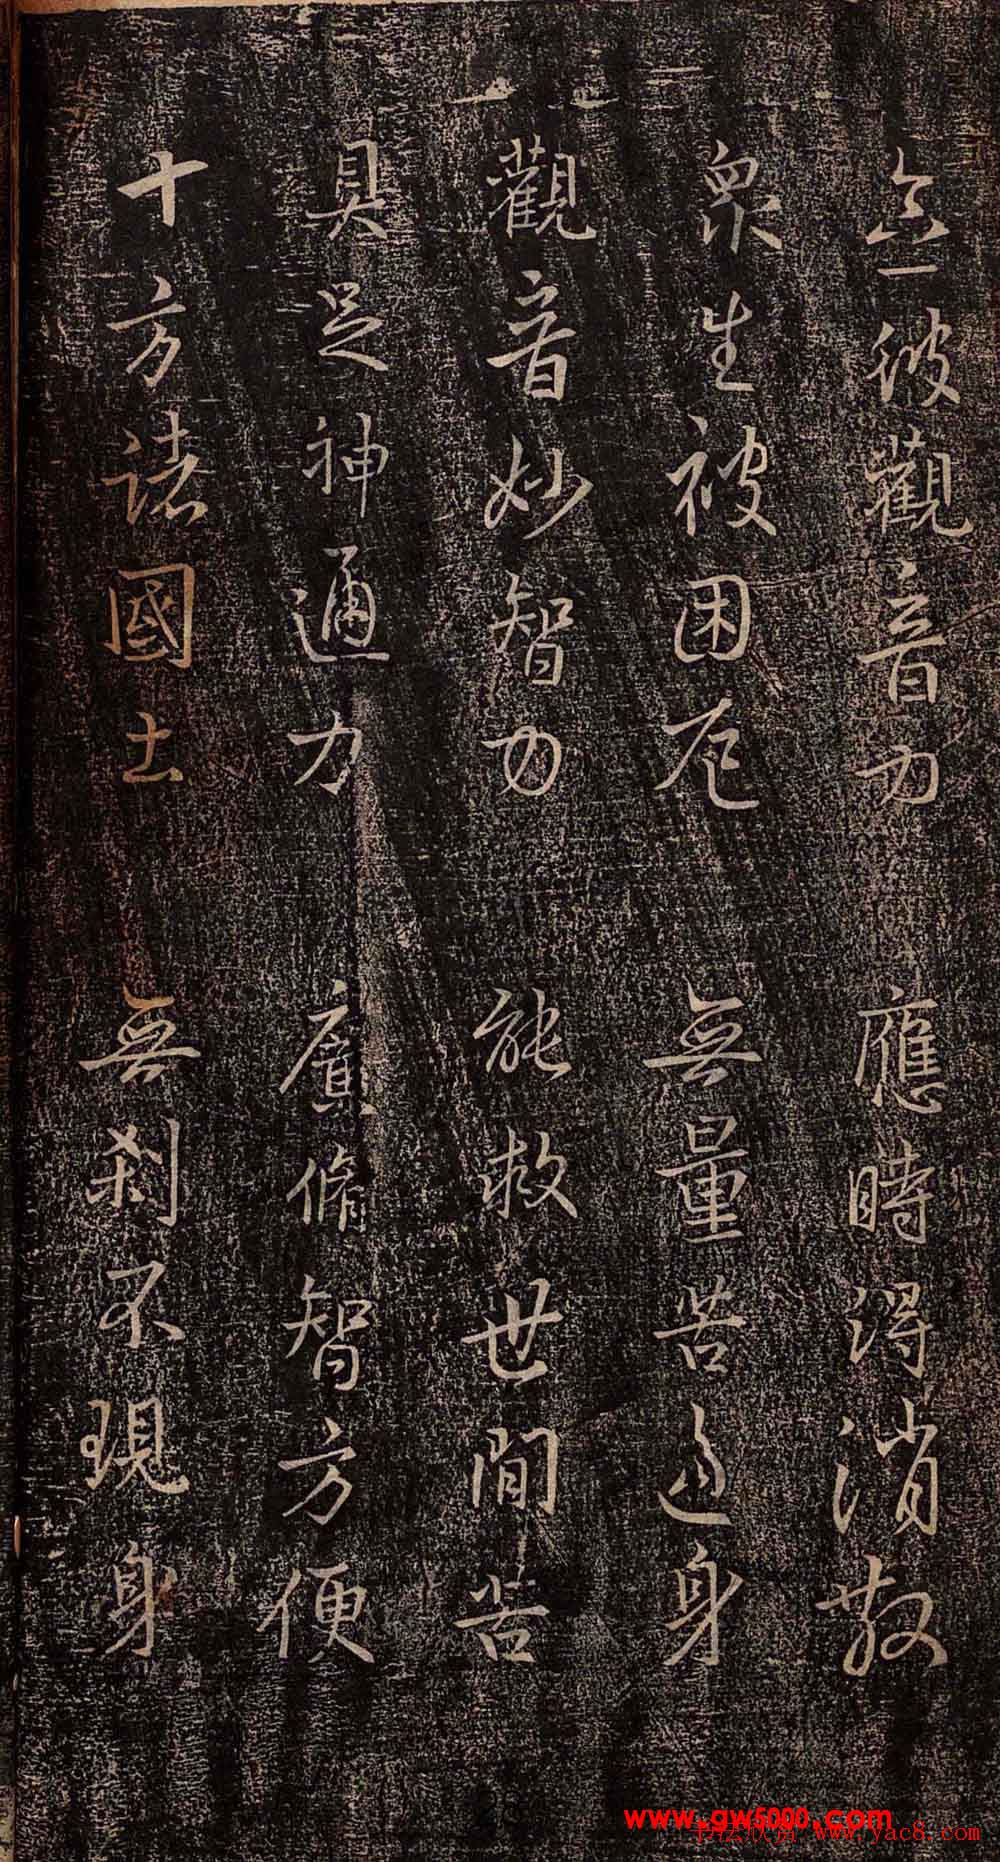 念彼觀音力 應時得消散
衆生被困厄 無量苦逼身
觀音妙智力 能救世間苦
具足神通力 廣修智方便
十方諸國土 無刹不現身
www.gw5000.com
www.yac8.com